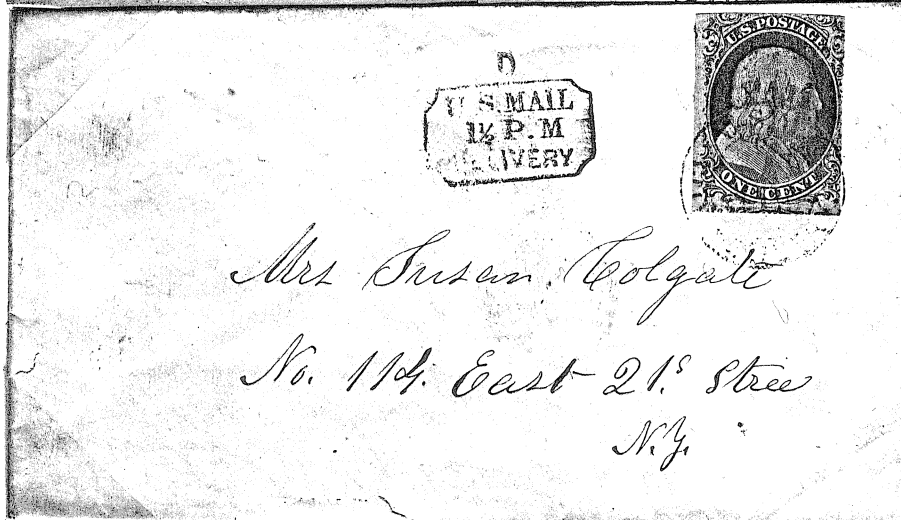 U.S. POSTAGE
ONE CENT
D
U.S. MAIL
1½ P.M
DELIVERY
Mrs Susan Colgate
No. 114. East 21s Stree
N.Y.